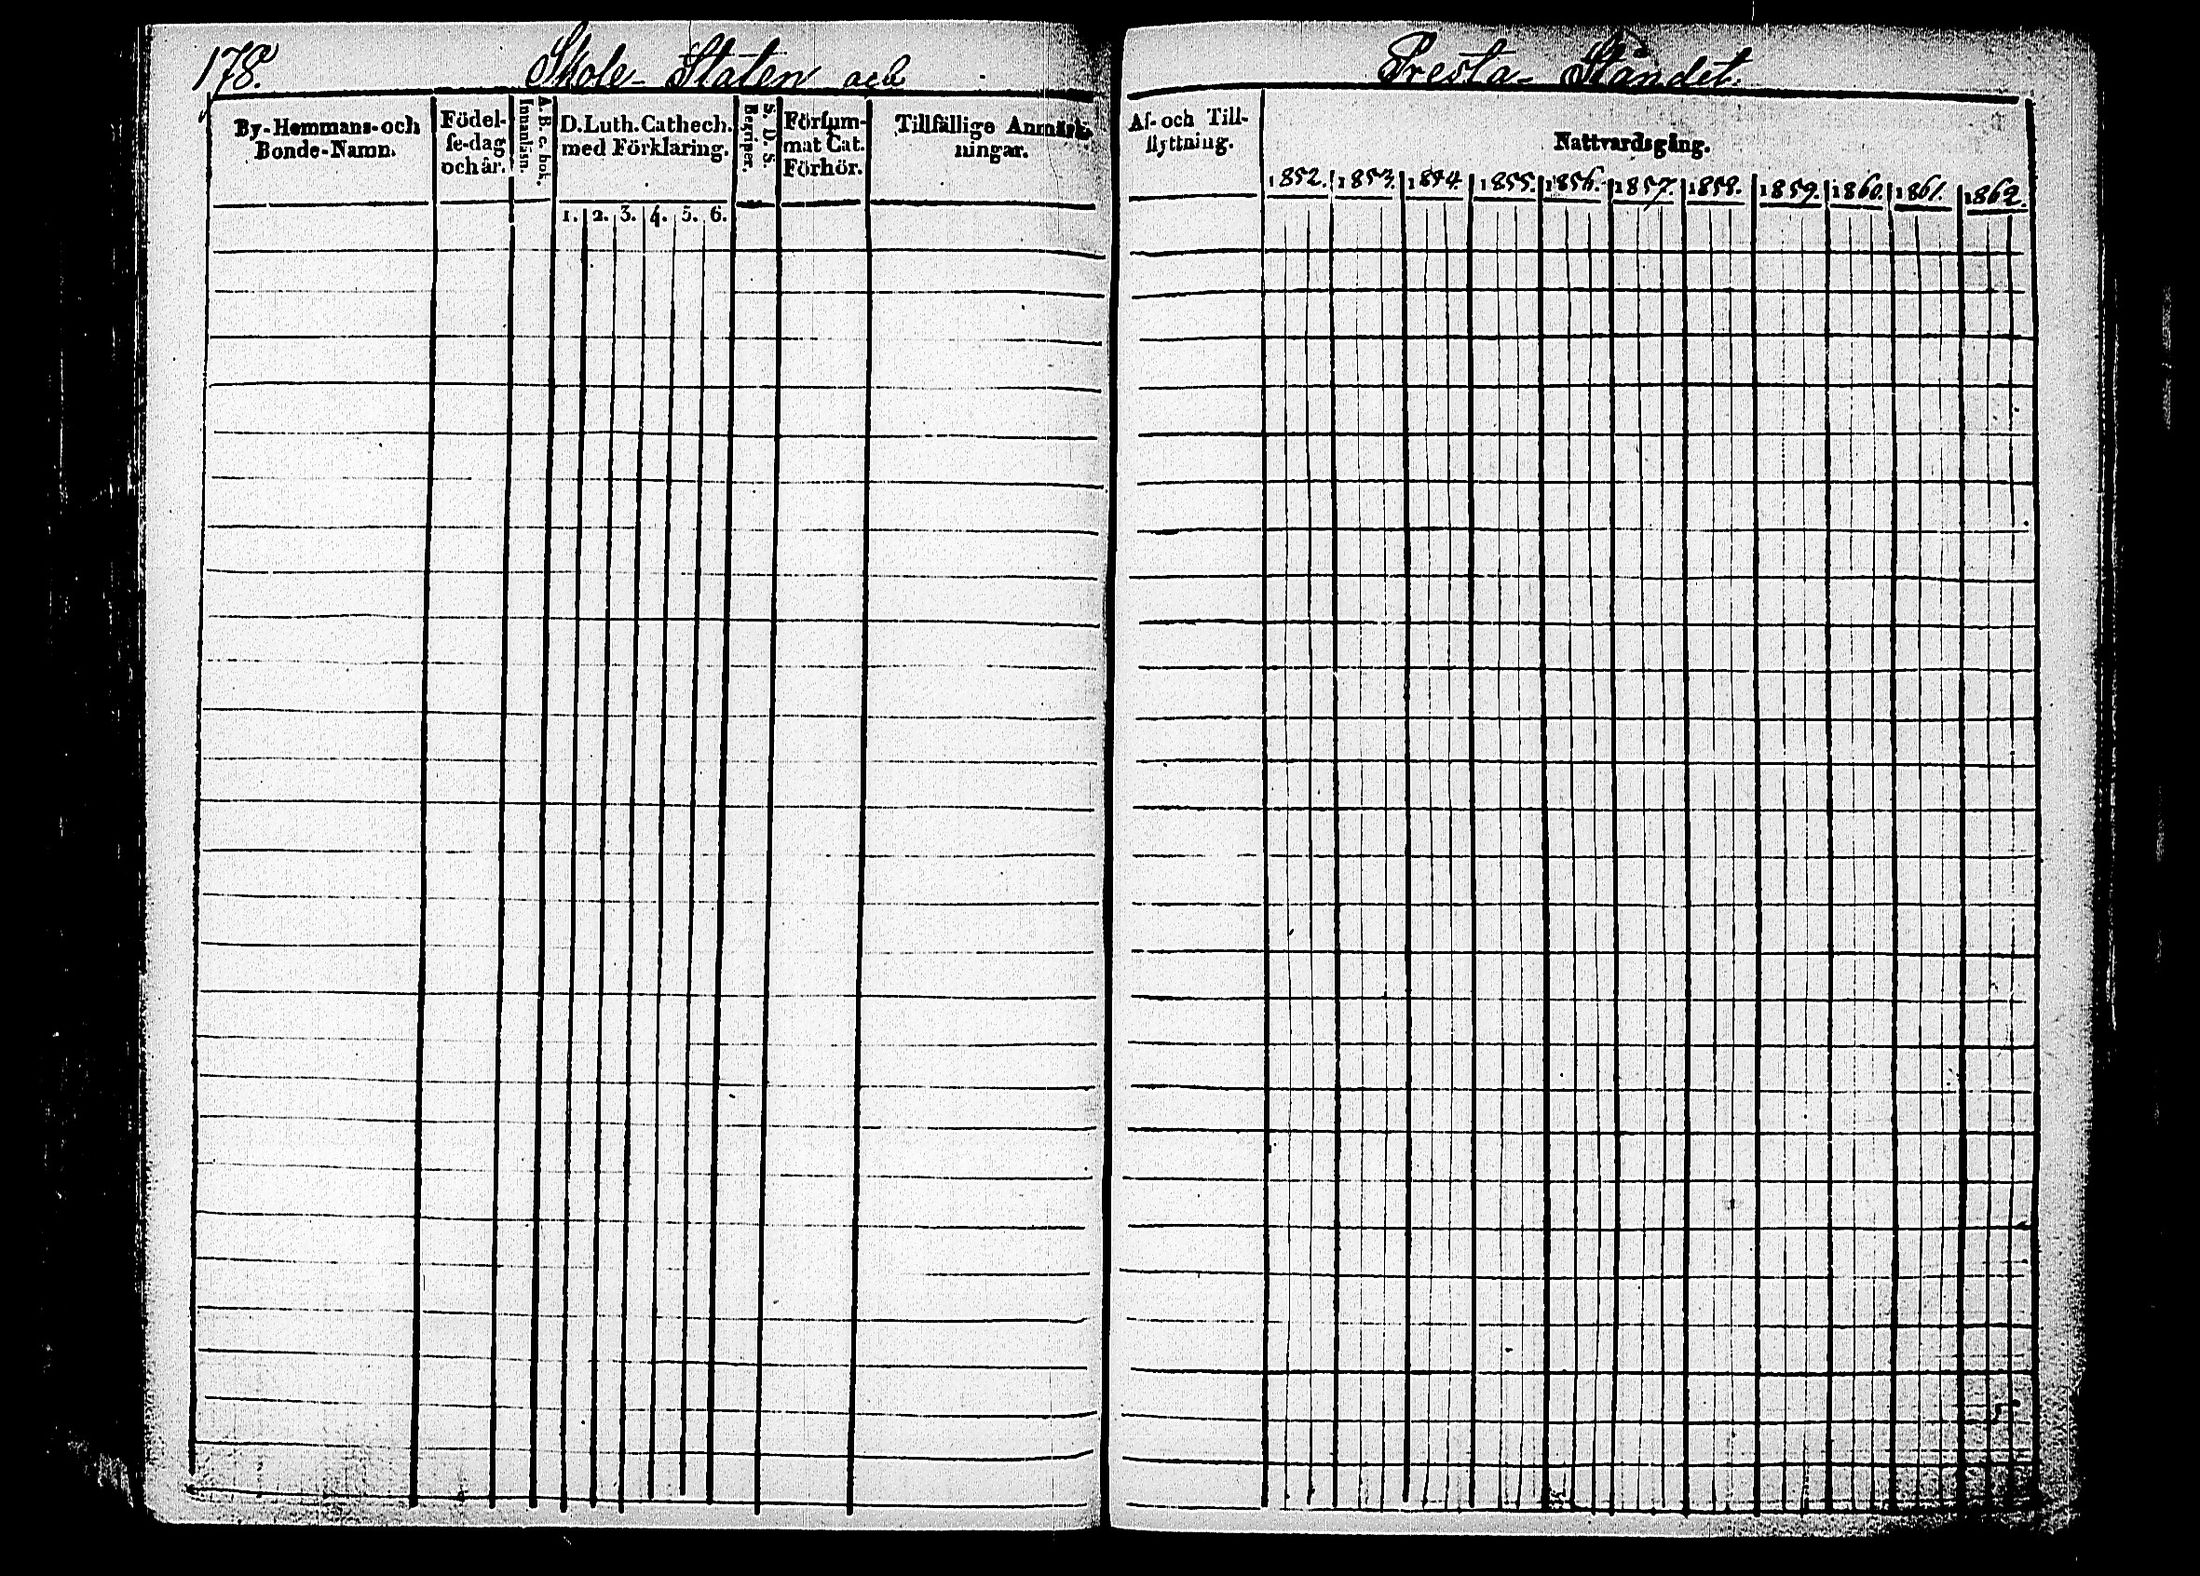 178.
Skole-Staten och
Presta-Ståndet.
By-Hemmans-och
Bonde-Namn.
Födel-
se-dag
och år.
A. B. c. bok.
Innanläsn.
D. Luth. Cathech.
med Förklaring.
1. 2. 3. 4. 5. 6.
S. D. S.
Begriper.
Försum-
mat Cat.
Förhör.
Tillfällige Anmärk-
ningar.
Af- och Till-
flyttning.
Nattvardsgång.
1852. 1853. 1854. 1855. 1856. 1857. 1858. 1859. 1860. 1861. 1862.